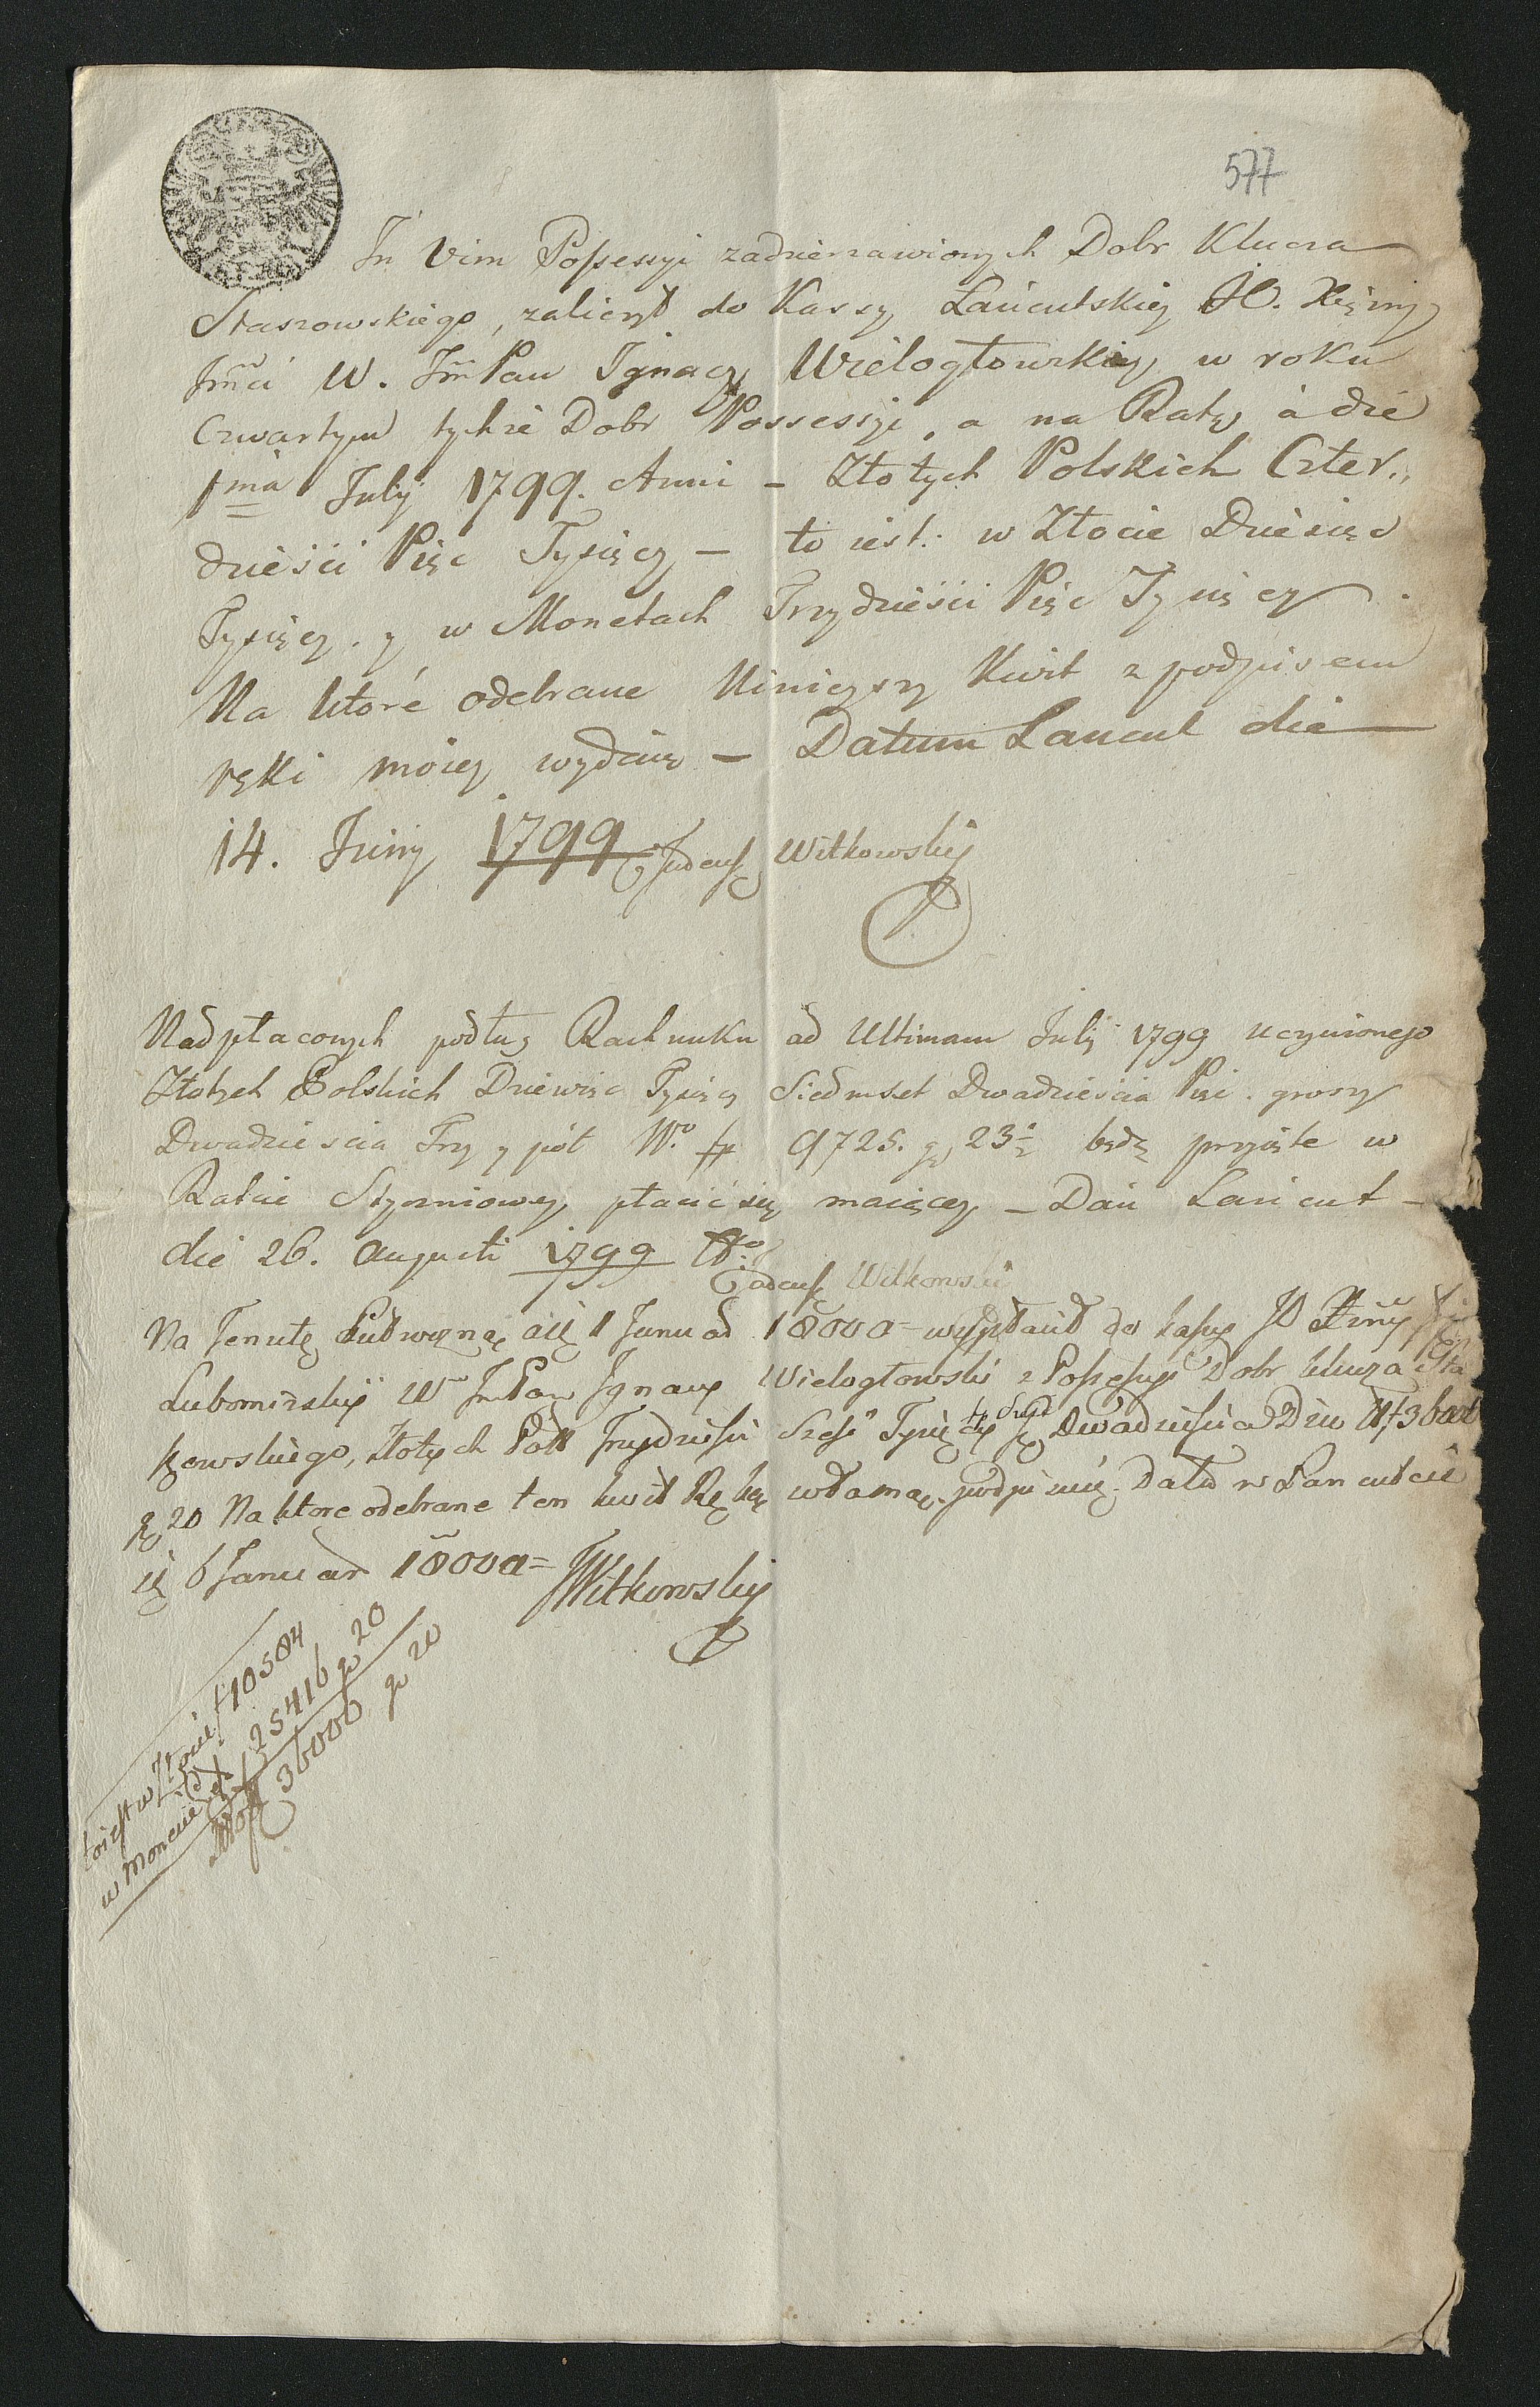 577
In Vim Possessyi zadzierzawionych Dobr Klucza
Staszowskiego, zaliczył do Kassy Łańcutskiey JO. Xiężny
Jmći W. JmPan Ignacy Wielogłowskiy w roku
Czwartym tychże Dobr Possessyi, a na Ratę à die
1ma July 1799. Anni – Złotych Polskich Czter.,
dzieści Pięc Tysięcy – to iest: w Złocie Dziesięc
Tysięcy. y w Monetach Trzydzieści Pięc Tysięcy
Na ktore odebrane Ninieyszy Kwit z podpisem
ręki moiey wydaię – Datum Łancut die
14. Juny 1799 Tadeusz Witkowskiy
Nadpłaconych podług Rachunku ad Ultimam July 1799 uczynionego
Złotych Polskich Dziewięc Tysięcy Siedmset Dwadzieścia Pięć. groszy
Dwadzieścia Trzy y pół 9725. gr 23½ będą przyięte w
Racie Styczniowey płacić się maiącey – Dań Łańcut –
die 26. Augusti 1799
Tadeusz Witkowski
Na Tenutę 1 Januar 1800 a = wypłacił do kassy JO Xżny
Lubomirskiy W JmPan Ignacy Wielogłowski z Possessyi Dobr klucza Sta
szowskiego, Złotych Pol Trzydzieści Szesć Tysięcy gr Dwadzieścia
gr 20 Na ktore odebrane ten kwit Ręką własną podpisuię. Datt w Łancutcie
6 Januar 1800 a = TWitkowskiy
to iest w Złocie f 10584
w monecie f 25416 gr 20
36000 gr 20